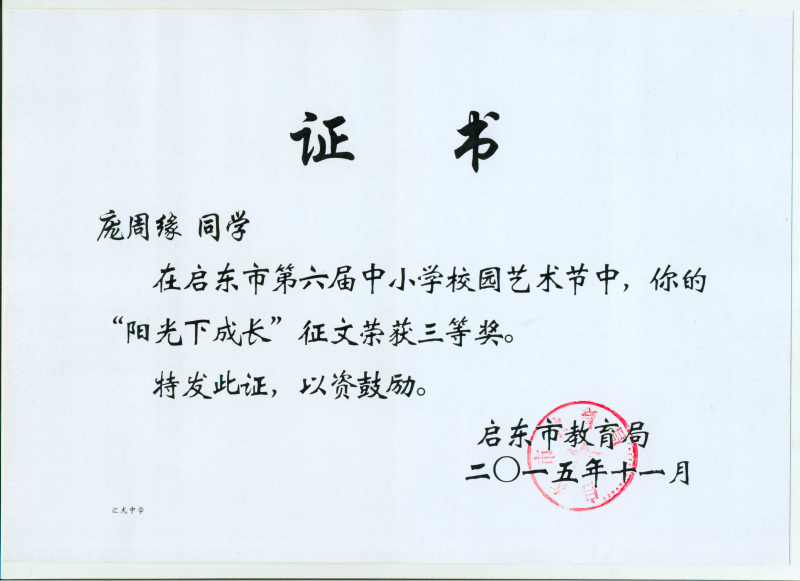 证 书
庞周缘 同学
在启东市第六届中小学校园艺术节中，你的
“阳光下成长”征文荣获三等奖。
特发此证，以资鼓励。
启东市教育局
二〇一五年十一月
汇龙中学